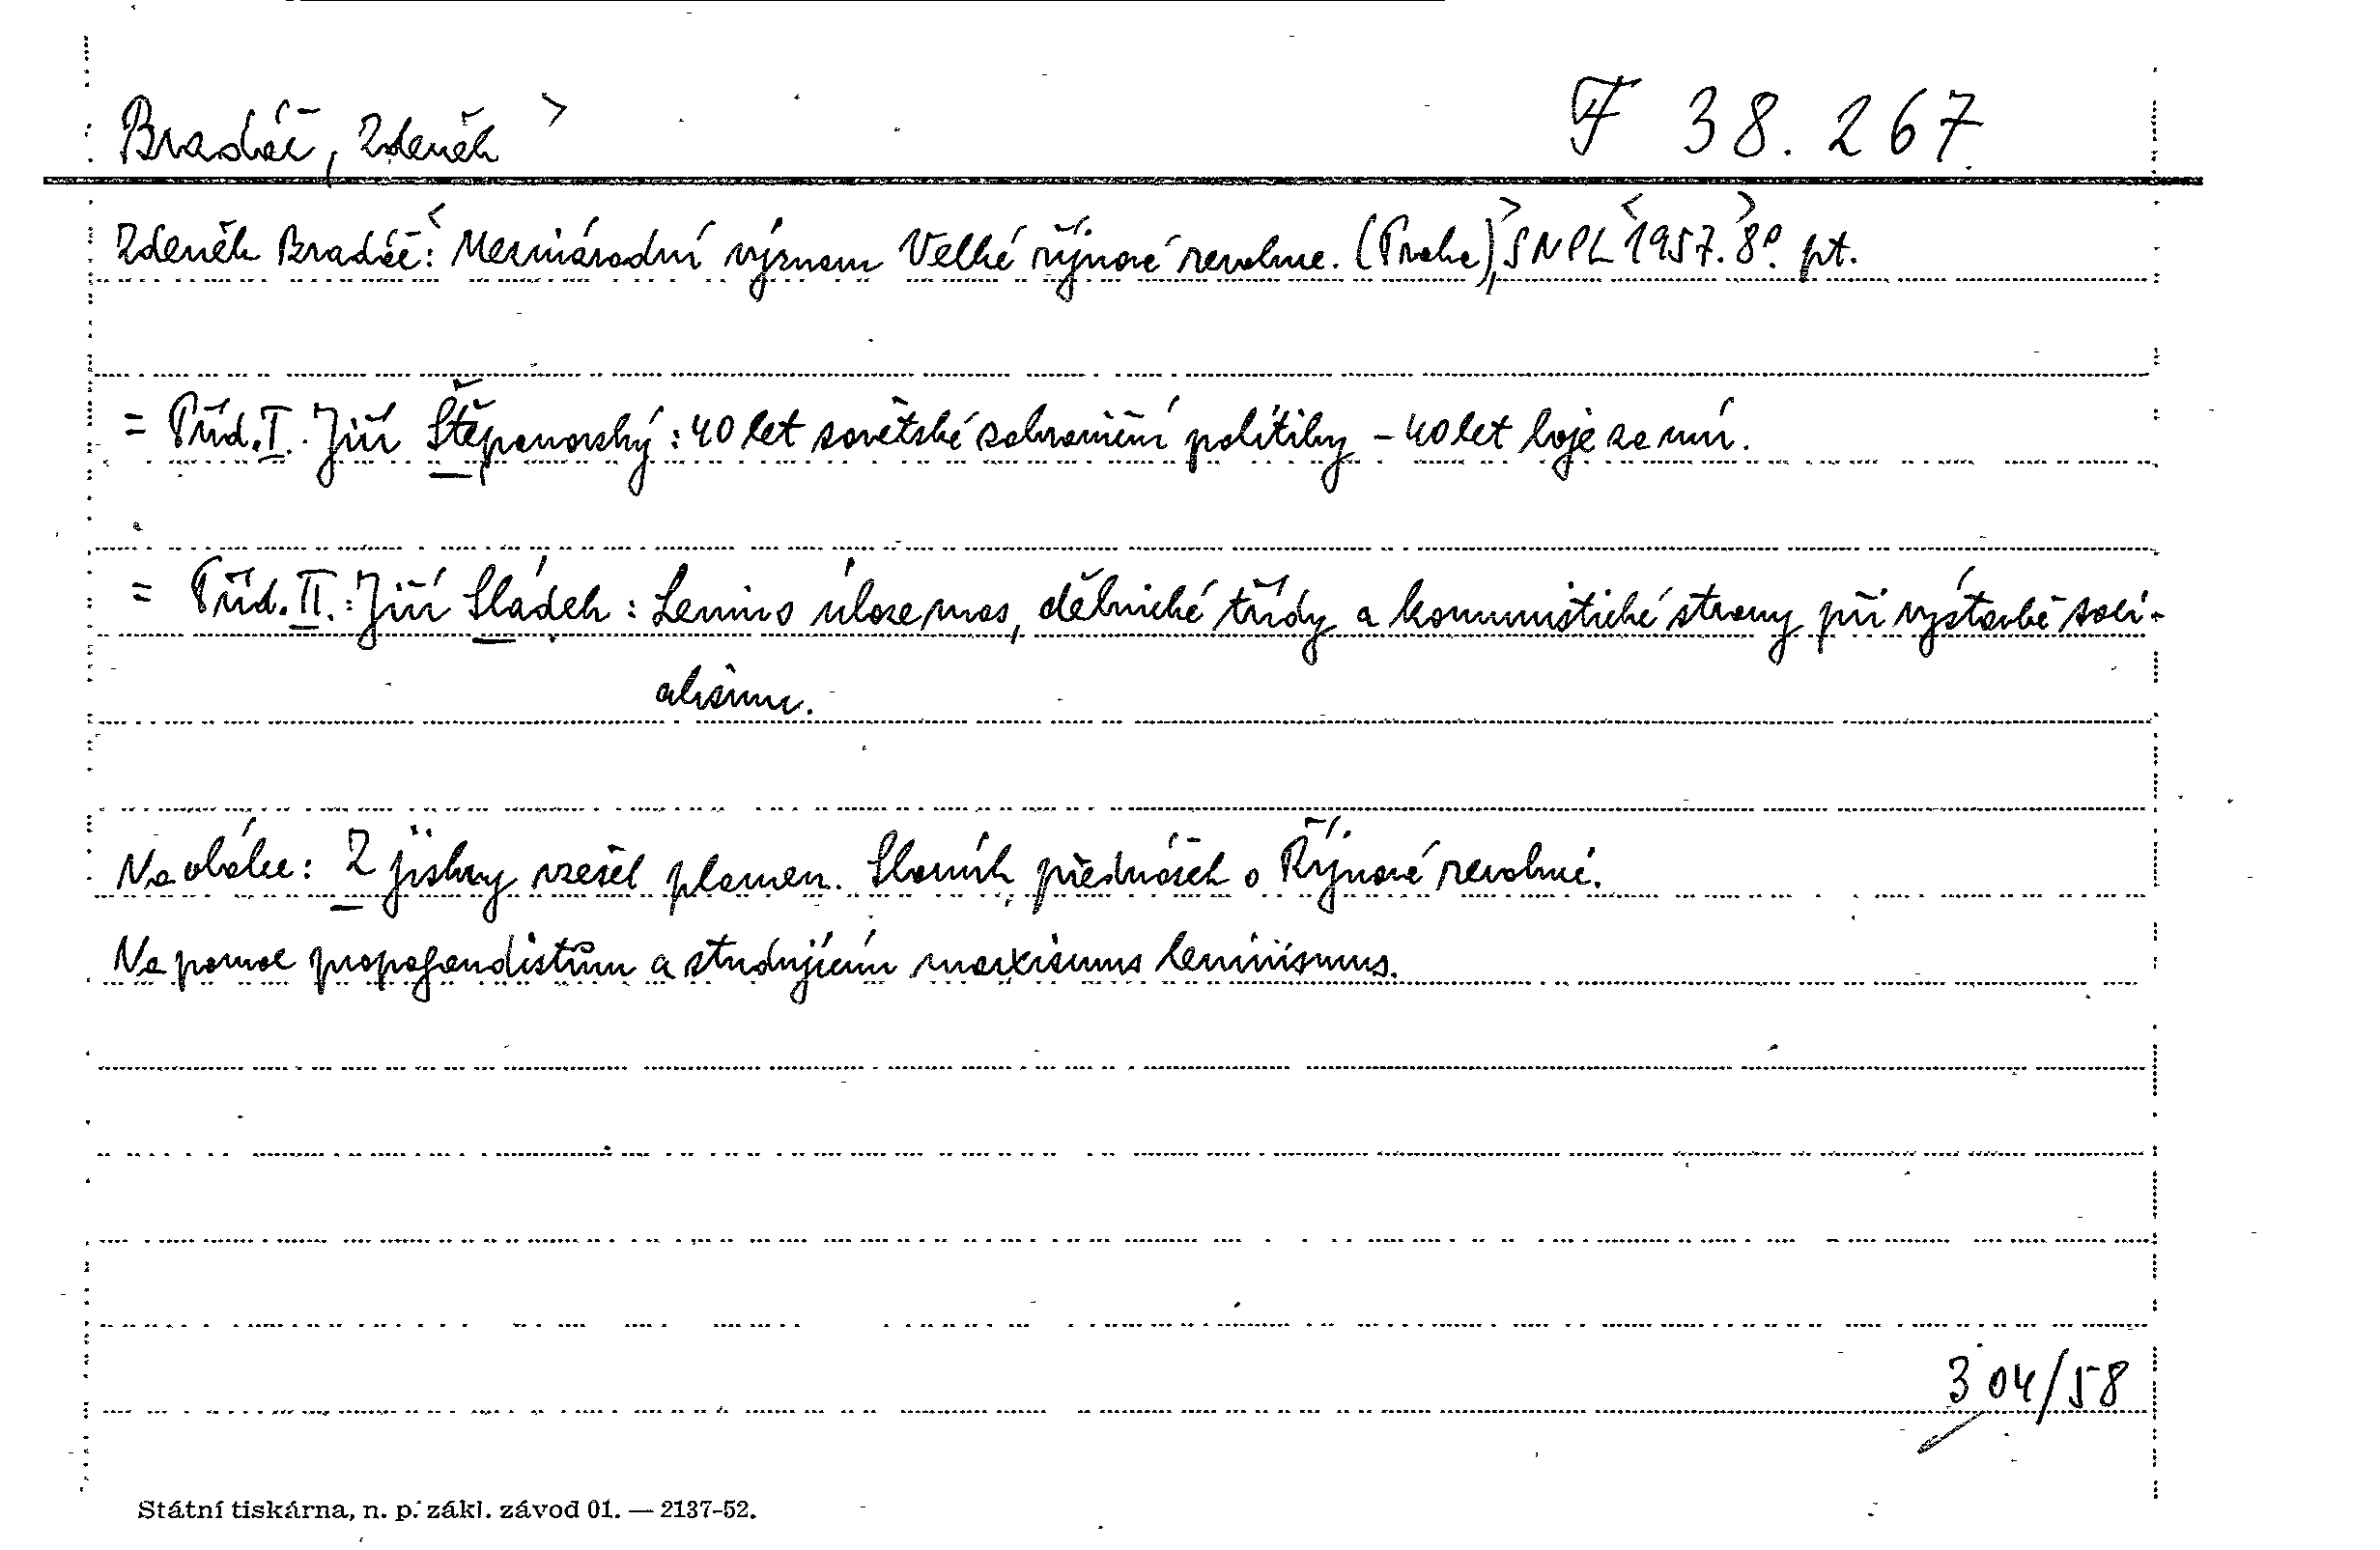 Bradáč, Zdeněk > F 38.267
Zdeněk Bradáč:< Mezinárodní význam Velké říjnové revoluce. (Praha),> SNPL <1957.> 8°. pt.
= Příd. I. Jiří Štěpanovský: 40 let sovětské zahraniční politiky – 40 let boje za mír.
= Příd. II.: Jiří Sládek: Lenin o úloze mas, dělnické třídy a komunistické strany při výstavbě soci-
alismu.
Na obálce: Z jiskry vzešel plamen. Sborník přednášek o Říjnové revoluci.
Na pomoc propagandistům a studujícím marxismus leninismus.
304/58
Státní tiskárna, n. p. zákl. závod 01. — 2137-52.